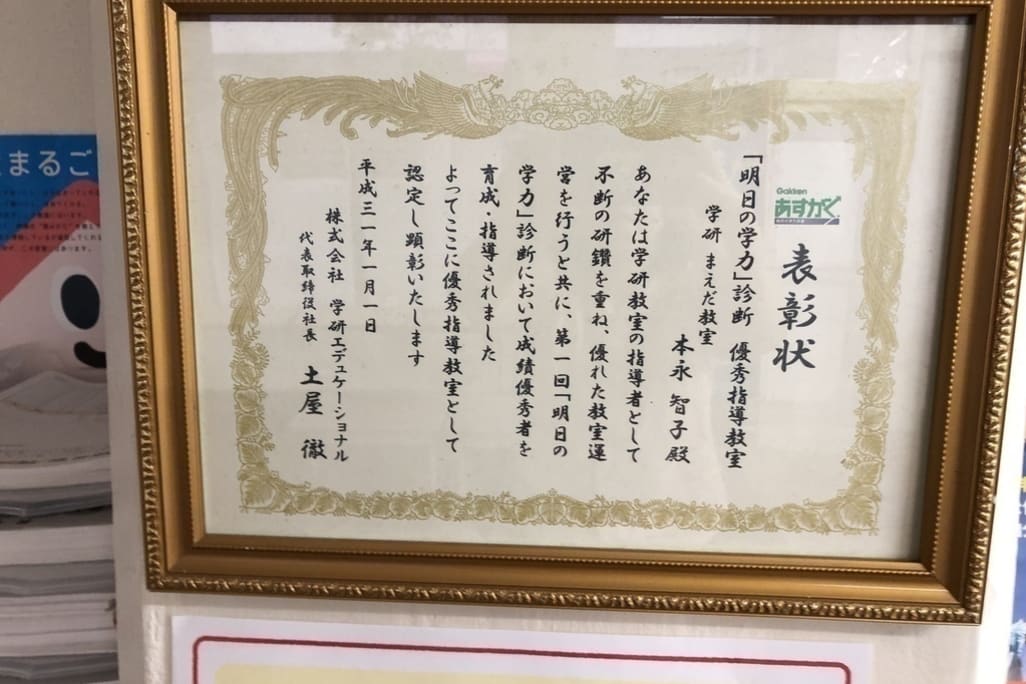 Gakken
あすがく
表彰状
「明日の学力」診断 優秀指導教室
学研 まえだ教室
本永 智子 殿
あなたは学研教室の指導者として
不断の研鑽を重ね、優れた教室運
営を行うと共に、第一回「明日の
学力」診断において成績優秀者を
育成・指導されました
よってここに優秀指導教室として
認定し顕彰いたします
平成三一年一月一日
株式会社 学研エデュケーショナル
代表取締役社長 土屋 徹
まるご